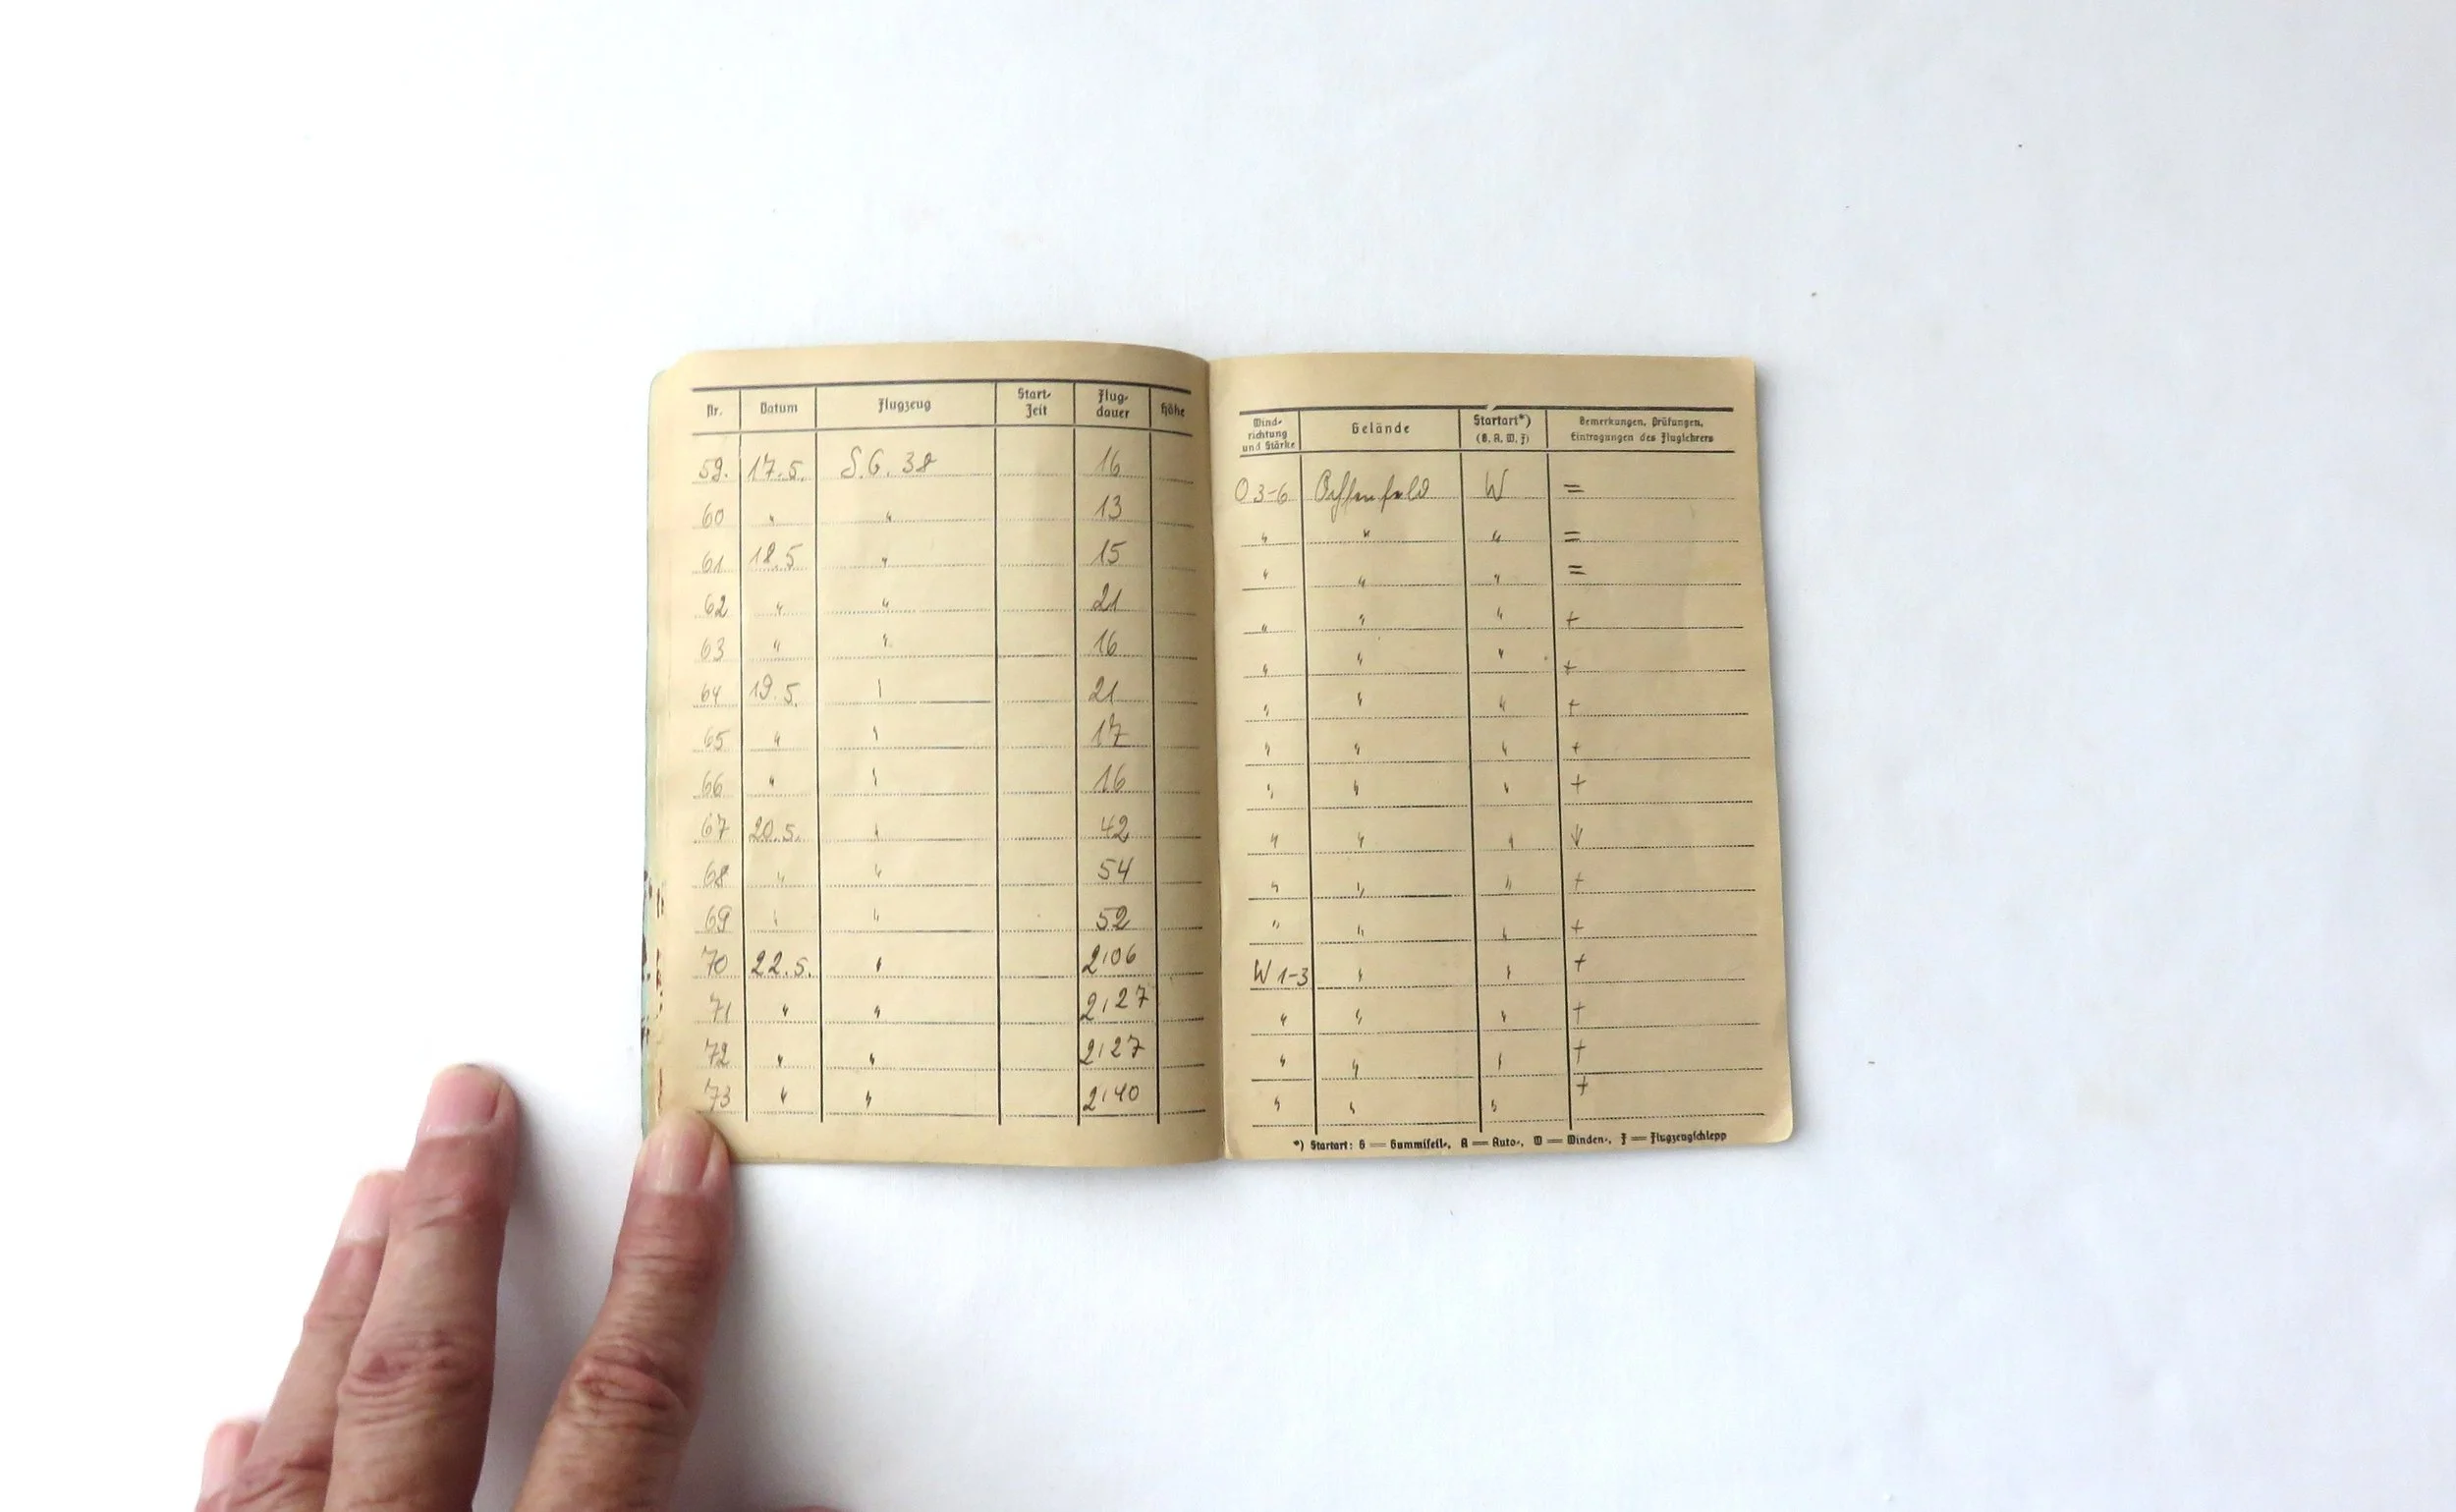 Nr. Datum Flugzeug Start-Zeit Flug-dauer Höhe
59. 17.5. S.G. 38 16
60 " " 13
61 18.5 " 15
62 " " 21
63 " " 16
64 19.5. " 21
65 " " 17
66 " " 16
67 20.5. " 42
68 " " 54
69 " " 52
70 22.5. " 2'06
71 " " 2'27
72 " " 2'27
73 " " 2'40
Wind-richtung und Stärke Gelände Startart*) (G, A, W, F) Bemerkungen, Prüfungen, Eintragungen des Fluglehrers
O 3-6 W =
" " " =
" " " =
" " " +
" " " +
" " " +
" " " +
" " " +
" " "
" " " +
" " " +
W 1-3 " " +
" " " +
" " " +
" " " +
*) Startart: G = Gummiseil-, A = Auto-, W = Winden-, F = Flugzeugschlepp